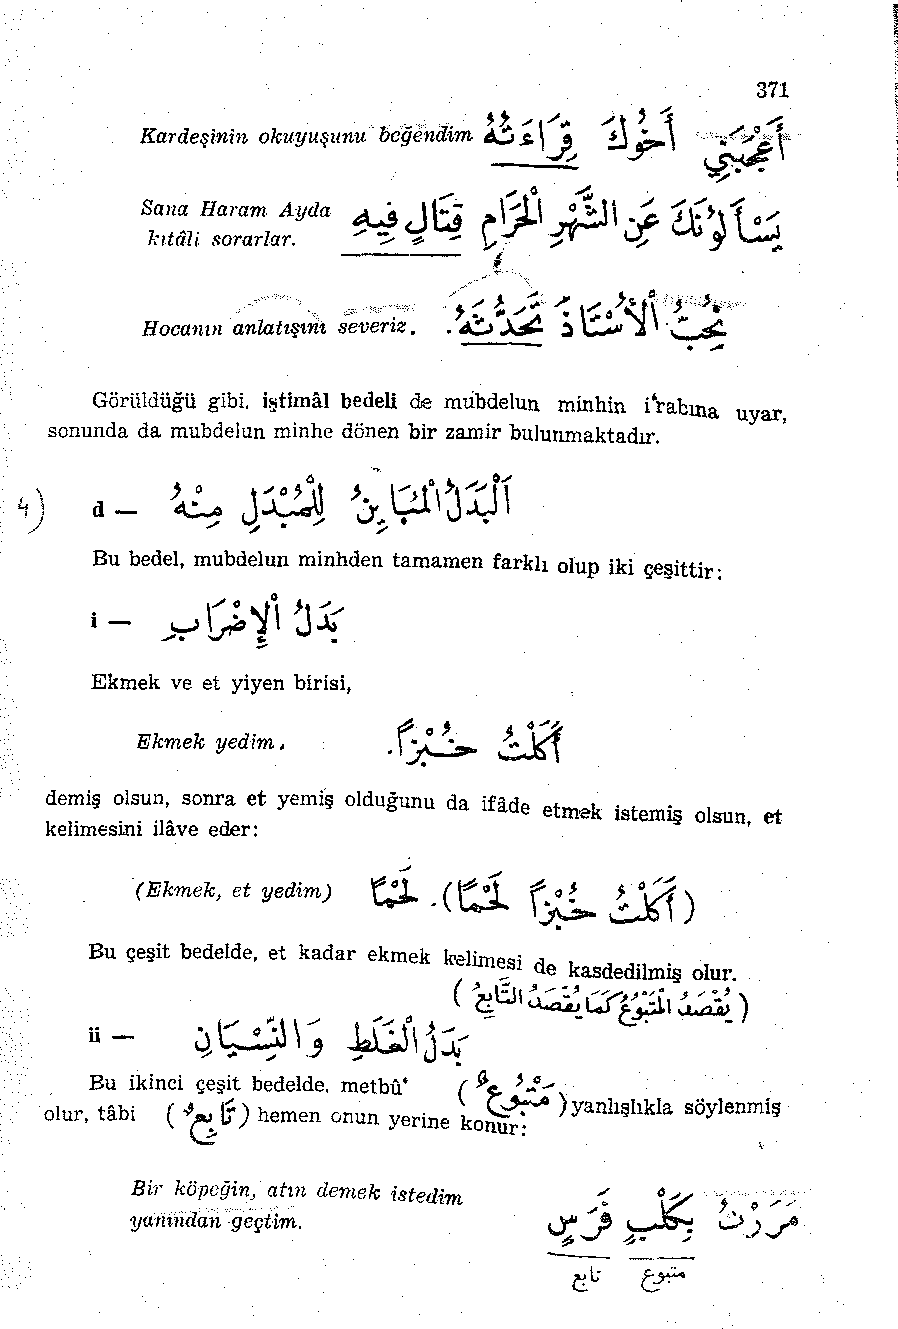 371
Kardeşinin okuyuşunu beğendim أَعْجَبَنِي أَخُوكَ قِرَاءَتُهُ
Sana Haram Ayda يَسْأَلُونَكَ عَنِ الشَّهْرِ الْحَرَامِ قِتَالٍ فِيهِ
kıtâli sorarlar.
Hocanın anlatışını severiz. نُحِبُّ الْأُسْتَاذَ تَحَدُّثَهُ.
Görüldüğü gibi, iştimâl bedeli de mübdelun minhin i'rabına uyar,
sonunda da mubdelun minhe dönen bir zamir bulunmaktadır.
4) d — اَلْبَدَلُ الْمُبَايِنُ لِلْمُبْدَلِ مِنْهُ
Bu bedel, mubdelun minhden tamamen farklı olup iki çeşittir:
i — بَدَلُ الْإِضْرَابِ
Ekmek ve et yiyen birisi,
Ekmek yedim. أَكَلْتُ خُبْزاً.
demiş olsun, sonra et yemiş olduğunu da ifâde etmek istemiş olsun, et
kelimesini ilâve eder:
(Ekmek, et yedim) (أَكَلْتُ خُبْزاً لَحْمًا). لَحْمًا
Bu çeşit bedelde, et kadar ekmek kelimesi de kasdedilmiş olur.
(يُقْصَدُ الْمَتْبُوعُ كَمَا يُقْصَدُ التَّابِعُ)
ii — بَدَلُ الْغَلَطِ وَالنِّسْيَانِ
Bu ikinci çeşit bedelde, metbû' (مَتْبُوعٌ) yanlışlıkla söylenmiş
olur, tâbi (تَابِعٌ) hemen onun yerine konur:
Bir köpeğin, atın demek istedim مَرَرْتُ بِكَلْبٍ فَرَسٍ
yanından geçtim.
متبوع تابع